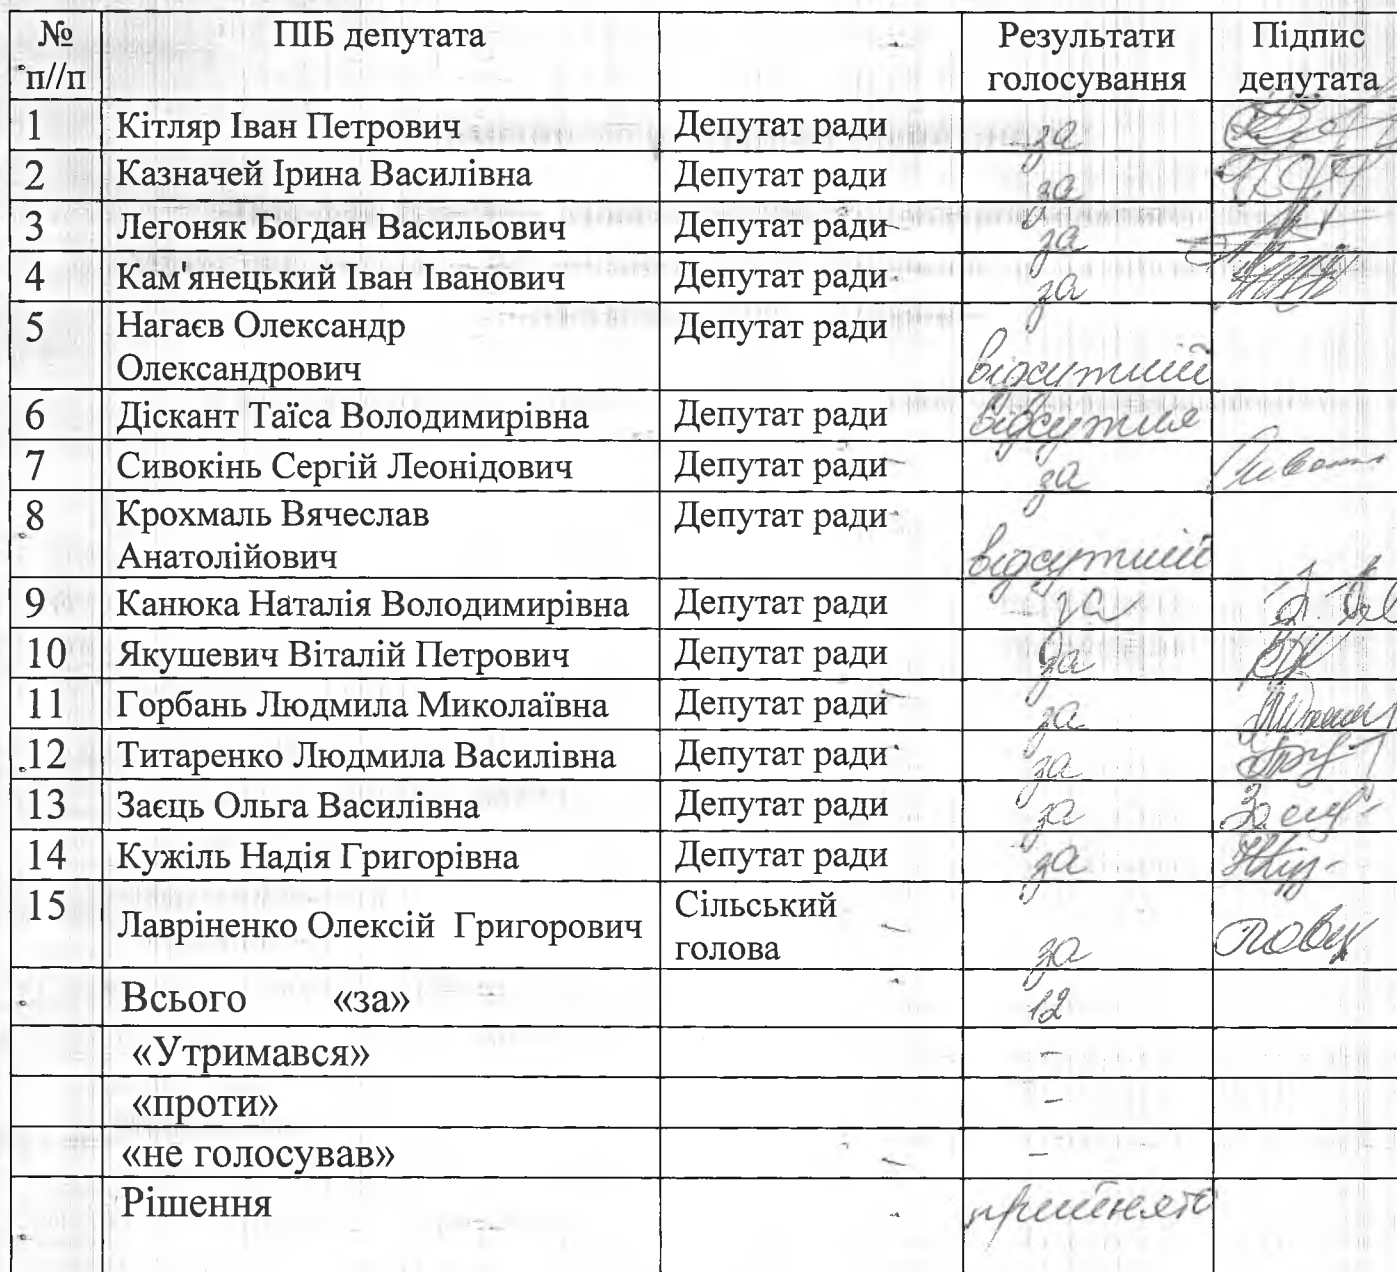 № ПІБ депутата Результати Підпис
п//п голосування депутата
1 Кітляр Іван Петрович Депутат ради за
2 Казначей Ірина Василівна Депутат ради за
3 Легоняк Богдан Васильович Депутат ради за
4 Кам'янецький Іван Іванович Депутат ради за
5 Нагаєв Олександр Депутат ради
Олександрович відсутній
6 Діскант Таїса Володимирівна Депутат ради відсутня
7 Сивокінь Сергій Леонідович Депутат ради за
8 Крохмаль Вячеслав Депутат ради
Анатолійович відсутній
9 Канюка Наталія Володимирівна Депутат ради за
10 Якушевич Віталій Петрович Депутат ради за
11 Горбань Людмила Миколаївна Депутат ради за
12 Титаренко Людмила Василівна Депутат ради за
13 Заєць Ольга Василівна Депутат ради за
14 Кужіль Надія Григорівна Депутат ради за
15 Лавріненко Олексій Григорович Сільський
голова за
Всього «за» 12
«Утримався» -
«проти» -
«не голосував» -
Рішення прийнято